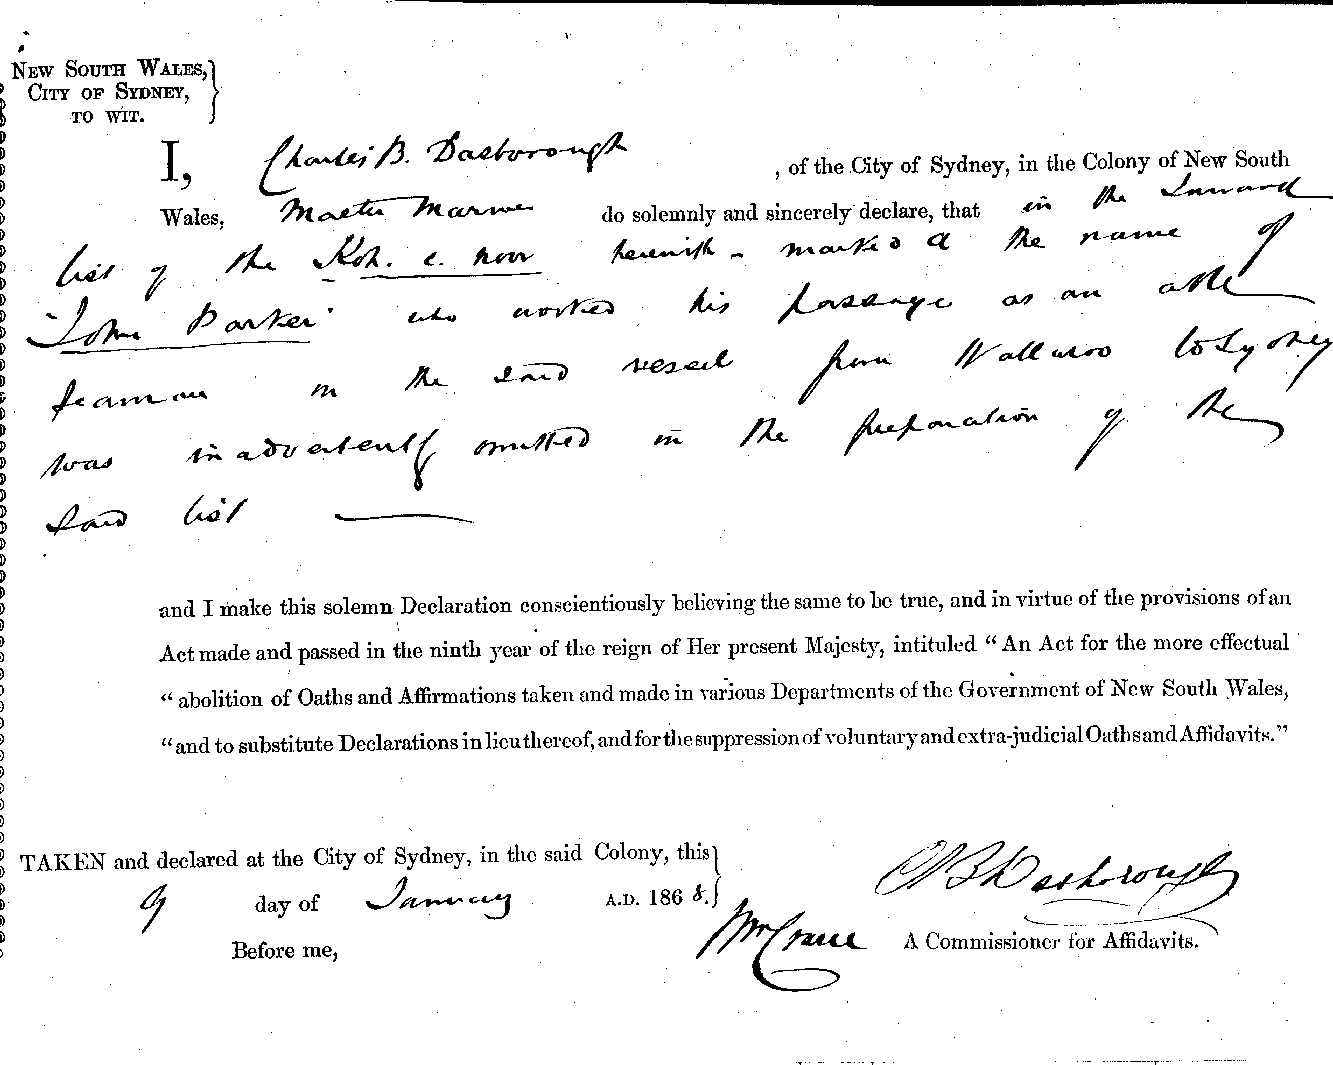 NEW SOUTH WALES,
CITY OF SYDNEY,
TO WIT.
I, Charles B. Dasborough, of the City of Sydney, in the Colony of New South
Wales, Master Mariner do solemnly and sincerely declare, that in the Inward
list of the Koh. e. noor herewith - marked A the name of
"John Parker" who worked his passage as an able
seaman in the said vessel from Wallaroo to Sydney
was inadvertently omitted in the preparation of the
said list
and I make this solemn Declaration conscientiously believing the same to be true, and in virtue of the provisions of an
Act made and passed in the ninth year of the reign of Her present Majesty, intituled “ An Act for the more effectual
“ abolition of Oaths and Affirmations taken and made in various Departments of the Government of New South Wales,
“and to substitute Declarations in lieu thereof, and for the suppression of voluntary and extra-judicial Oaths and Affidavits.”
TAKEN and declared at the City of Sydney, in the said Colony, this
9 day of January A.D. 1868.
CB Dasborough
Before me, A Commissioner for Affidavits.